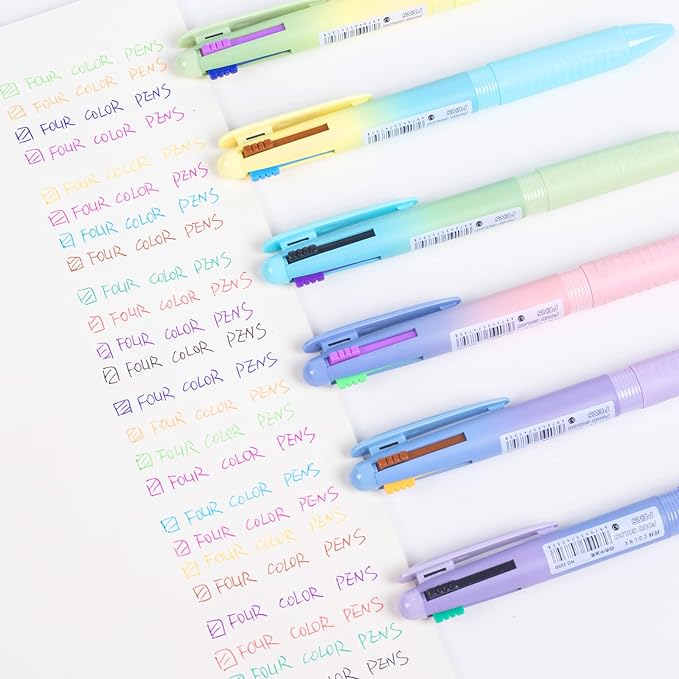 FOUR COLOR PENS
FOUR COLOR PENS
FOUR COLOR PENS
FOUR COLOR PENS
FOUR COLOR PENS
FOUR COLOR PENS
FOUR COLOR PENS
FOUR COLOR PENS
FOUR COLOR PENS
FOUR COLOR PENS
FOUR COLOR PENS
FOUR COLOR PENS
FOUR COLOR PENS
FOUR COLOR PENS
FOUR COLOR PENS
FOUR COLOR PENS
FOUR COLOR PENS
FOUR COLOR PENS
FOUR COLOR PENS
FOUR COLOR PENS
FOUR COLOR PENS
FOUR COLOR PENS
FOUR COLOR PENS
FOUR COLOR PENS
PENS
PENS
FOUR COLOR
PENS
FOUR COLOR
PENS
FOUR COLOR
PENS
FOUR COLOR
PENS